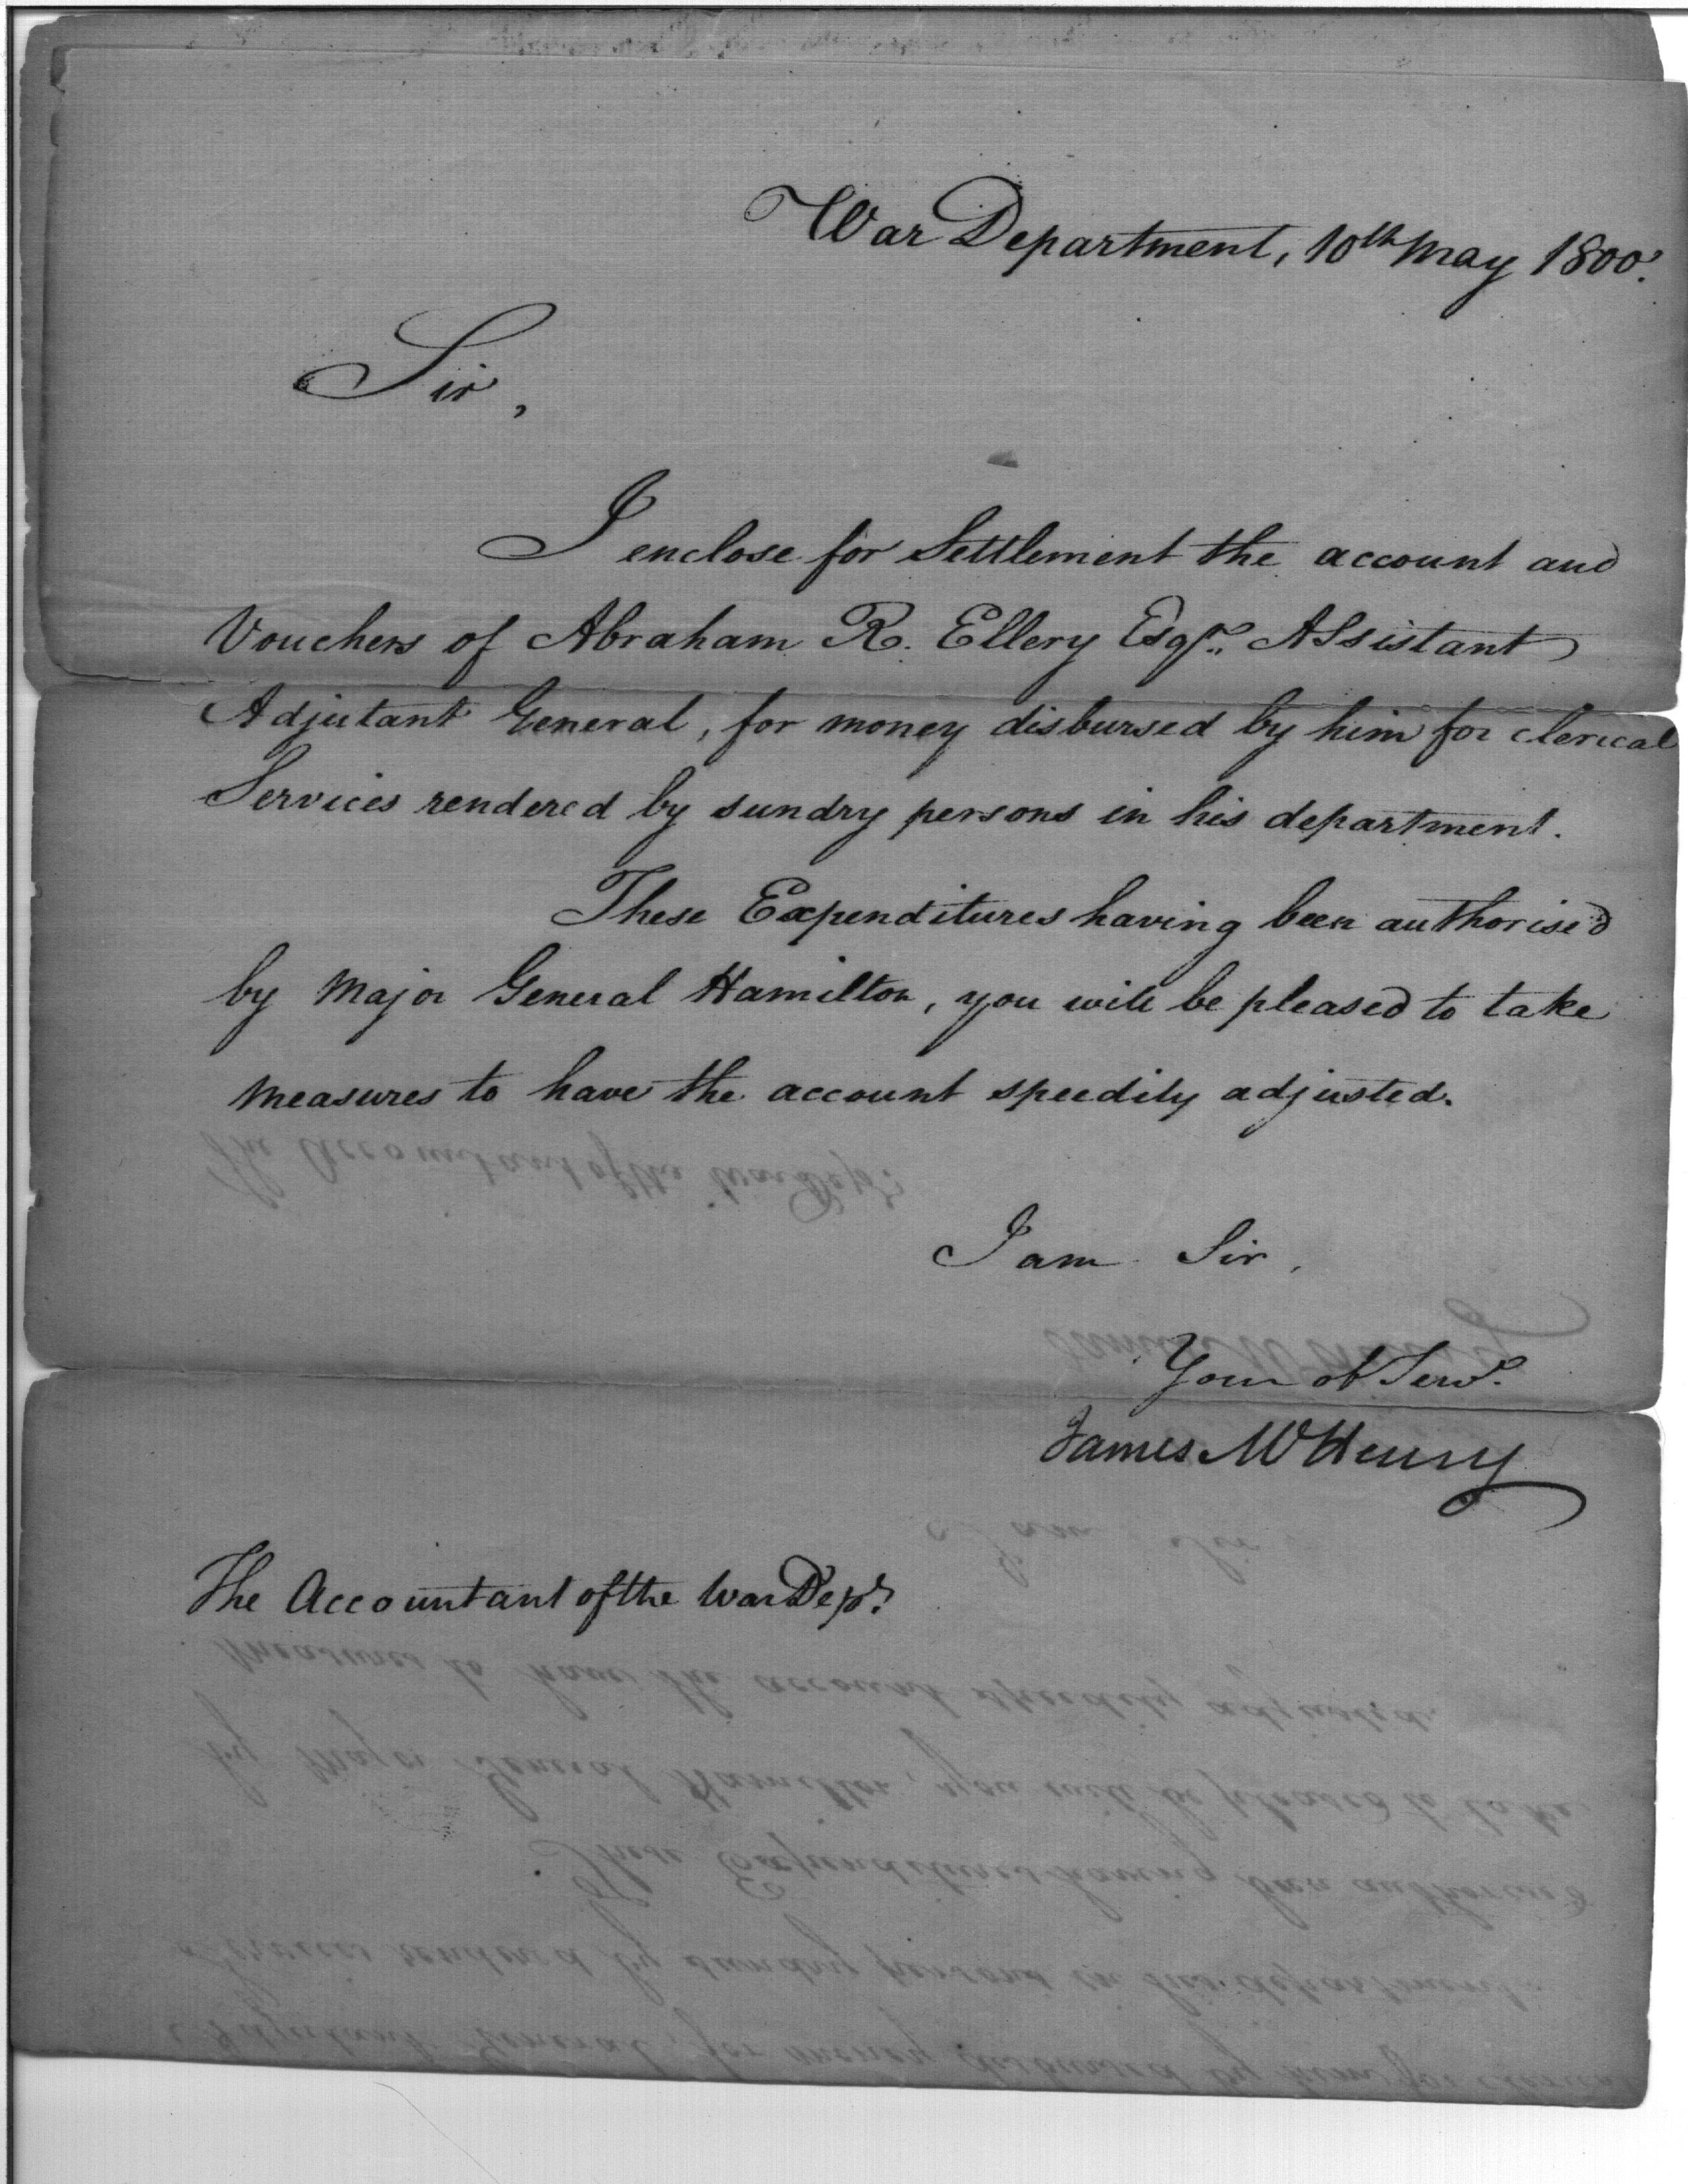 War Department, 10th May 1800.
Sir,
I enclose for Settlement the account and
Vouchers of Abraham R. Ellery Esqr. Assistant
Adjutant General, for money disbursed by him for clerical
Services rendered by sundry persons in his department.
These Expenditures having been authorised
by Major General Hamilton, you will be pleased to take
measures to have the account speedily adjusted.
I am Sir,
Your ob Servt.
James McHenry
The Accountant of the War Dept.